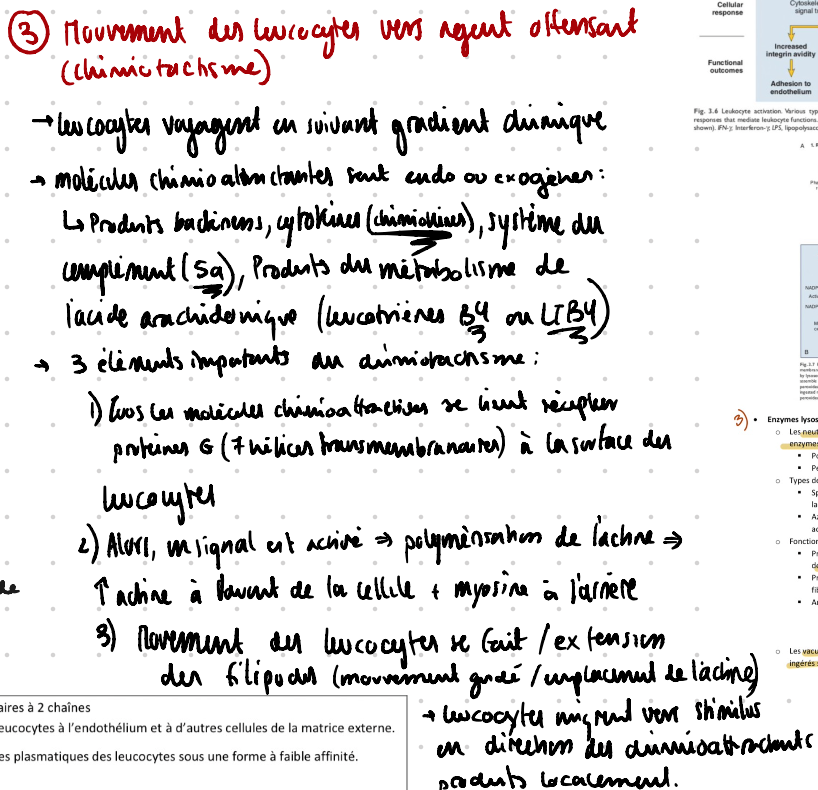 ③ Mouvement des leucocytes vers agent offensant
(chimiotachsme)
→ leucocytes voyagent en suivant gradient chimique
→ molécules chimioattractantes sont endo ou exogènes:
↳ Produits bactériens, cytokines (chimiokines), système du
complément (5a), Produits du métabolisme de
l'acide arachidonique (leucotriènes B4 ou LTB4)
→ 3 éléments importants du chimiotachsme:
1) Tous les molécules chimioattractives se lient récepteur
protéines G (7 hélices transmembranaires) à la surface des
leucocytes
2) Alors, un signal est activé ⇒ polymérisation de l'actine ⇒
↑ actine à l'avant de la cellule + myosine à l'arrière
3) Mouvement des leucocytes se fait / extension
des filipodes (mouvement guidé / emplacement de l'actine)
→ leucocytes migrent vers stimulus
en direction des chimioattractants
produits localement.
aires à 2 chaînes
eucocytes à l'endothélium et à d'autres cellules de la matrice externe.
es plasmatiques des leucocytes sous une forme à faible affinité.
Cellular
response
Cytoskele
signal t
Functional
outcomes
Increased
integrin avidity
Adhesion to
endothelium
Fig. 3.6 Leukocyte activation. Various typ
responses that mediate leukocyte functions.
shown). IFN-γ, Interferon-γ; LPS, lipopolysacc
A
B
3) • Enzymes lysos
○ Les neut
enzymes
▪ Po
▪ Pe
○ Types de
▪ Sp
la
▪ Az
ac
○ Fonction
▪ Pr
de
▪ Pr
fil
▪ An
○ Les vacu
ingérés s